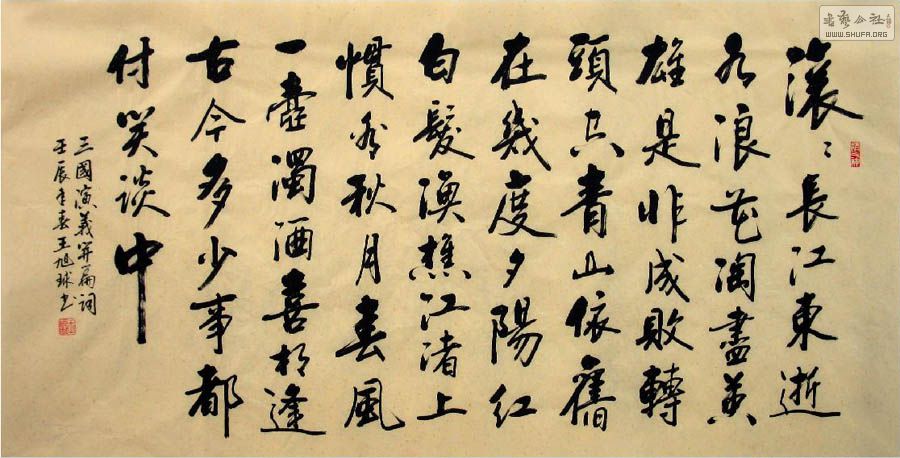 滾〻長江東逝
水浪花淘盡英
雄是非成敗轉
頭空青山依舊
在幾度夕陽红
白髮漁樵江渚上
慣看秋月春風
一壺濁酒喜相逢
古今多少事都
付笑谈中
三國演義開篇词
壬辰年春王旭球书
书艺公社
WWW.SHUFA.ORG